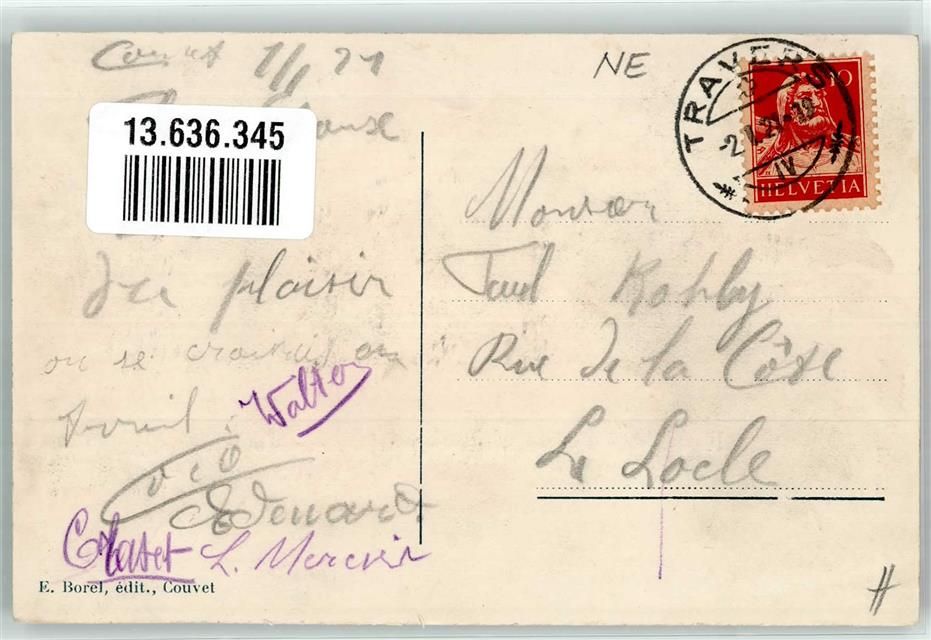 Couvet 1/1 21
13.636.345
du plaisir
on se croirait en
Avril.
Walter
Edouard
L. Mercier
E. Borel, édit., Couvet
NE
TRAVERS
10
HELVETIA
Monsieur
Paul
Rue de la Côte
Le Locle